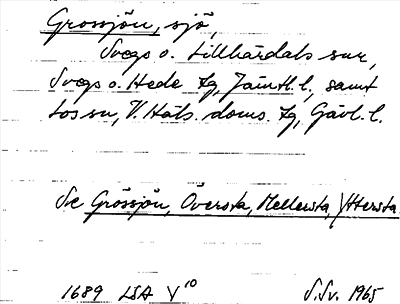 Grossjön, sjö,
Svegs o. Lillhärdals snr,
Svegs o. Hede tg, Jämtl. l., samt
Los sn, V. Häls. doms. tg, Gävl. l.
Se Grössjön, Översta, Mellersta, Yttersta
1689 LSA Y¹⁰ S.Sv. 1965